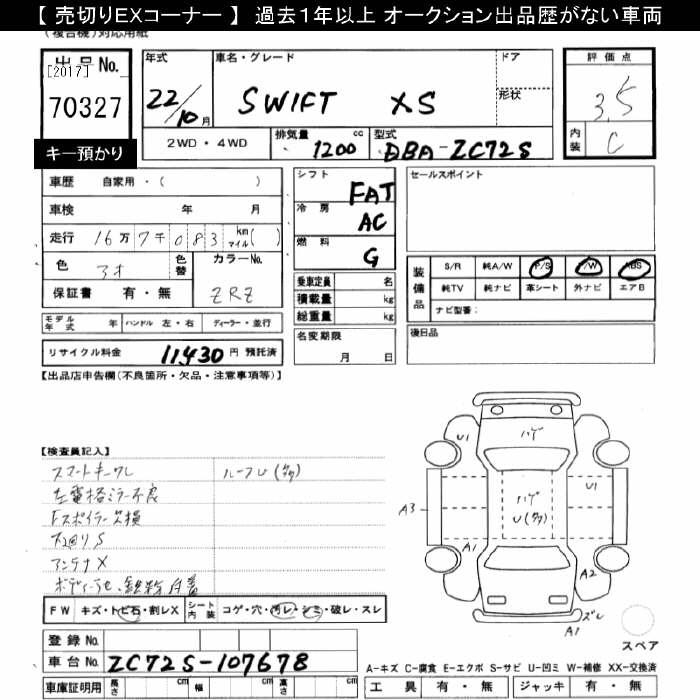 【 売切りEXコーナー 】 過去1年以上 オークション出品歴がない車両
(複合機)対応用紙
出品No.
[2017]
70327
キー預かり
年式
22/10月
車名・グレード
SWIFT XS
ドア
形状
評価点
3.5
内装
C
2WD・4WD
排気量
1200 cc
型式
DBA-ZC72S
車歴 自家用・( )
車検 年 月
走行 16万7千083 km マイル( )
色
アオ
色替
カラーNo.
ZRZ
保証書 有・無
モデル年式 年 ハンドル 左・右 ディーラー・並行
リサイクル料金 11,430 円 預託済
シフト
FAT
冷房
AC
燃料
G
乗車定員 名
積載量 kg
総重量 kg
名変期限
月 日
セールスポイント
装備品
S/R 純A/W P/S P/W ABS
純TV 純ナビ 革シート 外ナビ エアB
ナビ型番:
後日品
【出品店申告欄(不良箇所・欠品・注意事項等)】
【検査員記入】
スマートキーワレ
ルーフU(多)
左電格ミラー不良
Fスポイラー欠損
アンテナX
FW キズ・トビ石・割レX
シート内装 コゲ・穴・汚レ・シミ・破レ・スレ
登録No.
車台No. ZC72S-107678
車庫証明用 長さ 幅 高さ
U1
ハゲ
A3
ハゲ
U(多)
U1
A1
A2
ズレ
A1
スペア
A-キズ C-腐食 E-エクボ S-サビ U-凹ミ W-補修 XX-交換済
工具 有・無 ジャッキ 有・無